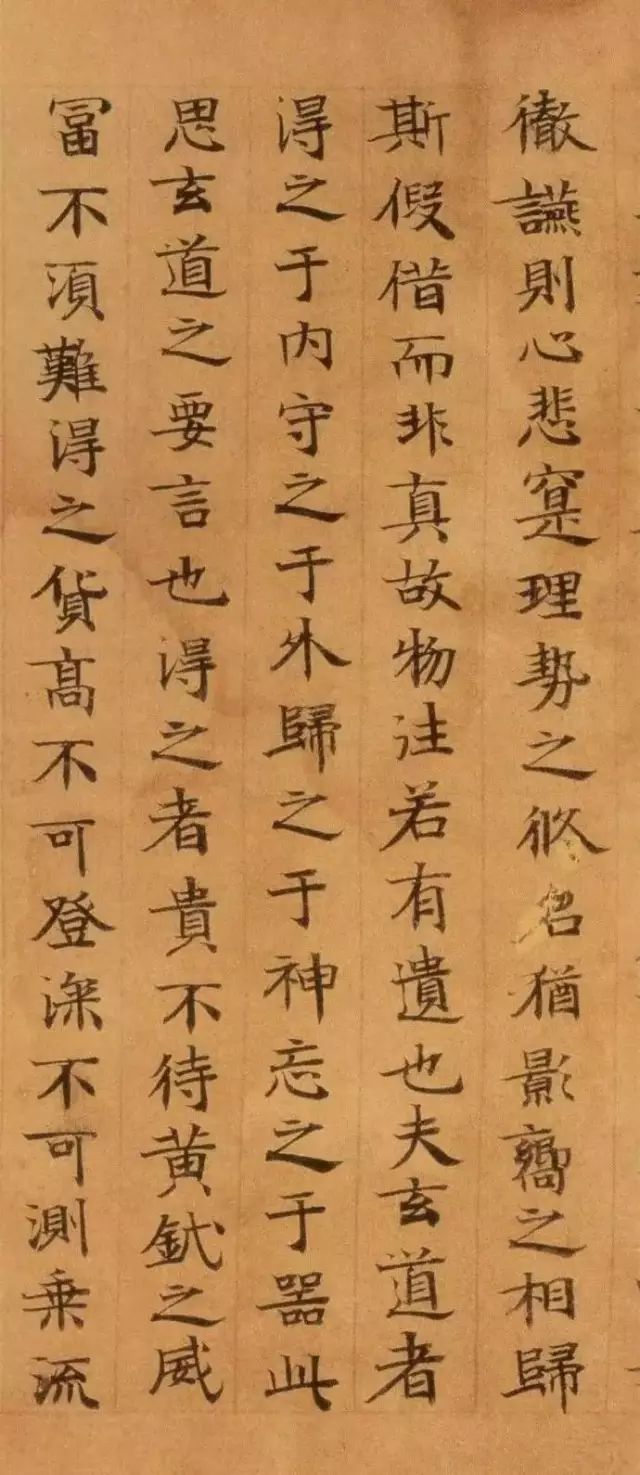 徹讌則心悲寔理勢之攸召猶影響之相歸
斯假借而非真故物往若有遺也夫玄道者
得之于内守之于外歸之于神忘之于器此
思玄道之要言也得之者貴不待黄鉞之威
富不須難得之貨髙不可登深不可測乗流